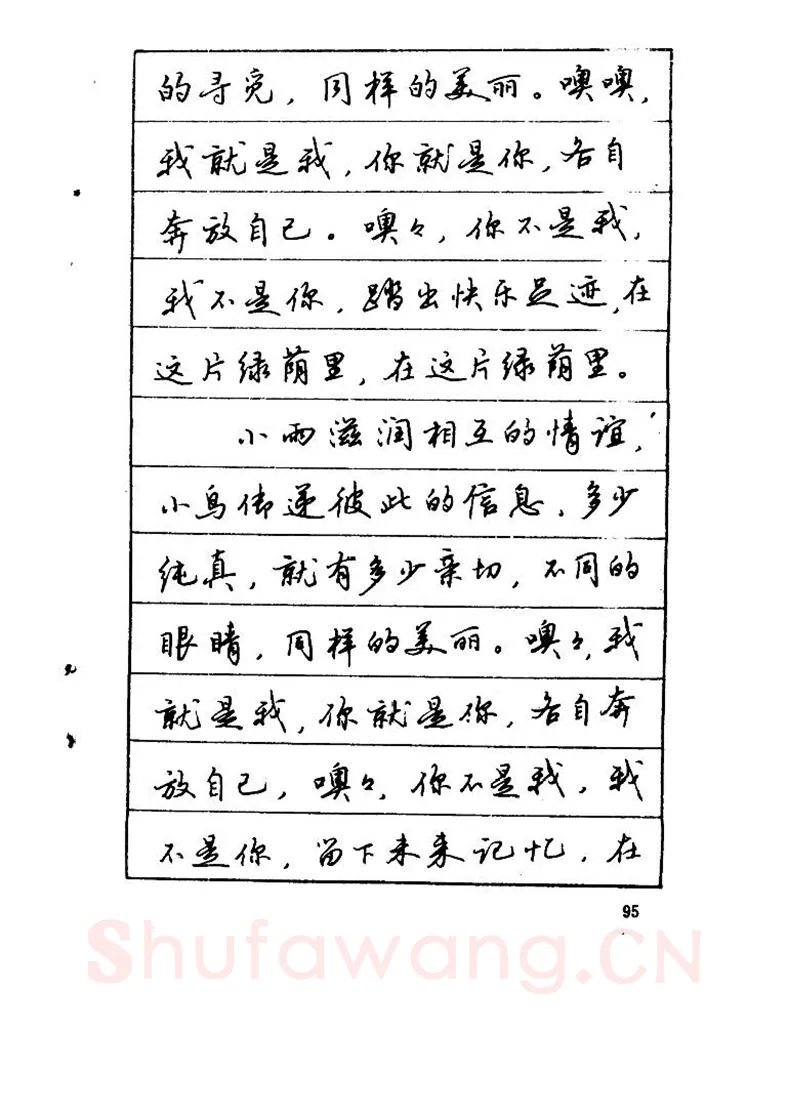 的寻觅，同样的美丽。噢噢，
我就是我，你就是你，各自
奔放自己。噢々，你不是我，
我不是你，踏出快乐足迹，在
这片绿荫里，在这片绿荫里。
小雨滋润相互的情谊，
小鸟传递彼此的信息，多少
纯真，就有多少亲切，不同的
眼睛，同样的美丽。噢々，我
就是我，你就是你，各自奔
放自己，噢々，你不是我，我
不是你，留下未来记忆，在
95
Shufawang.CN